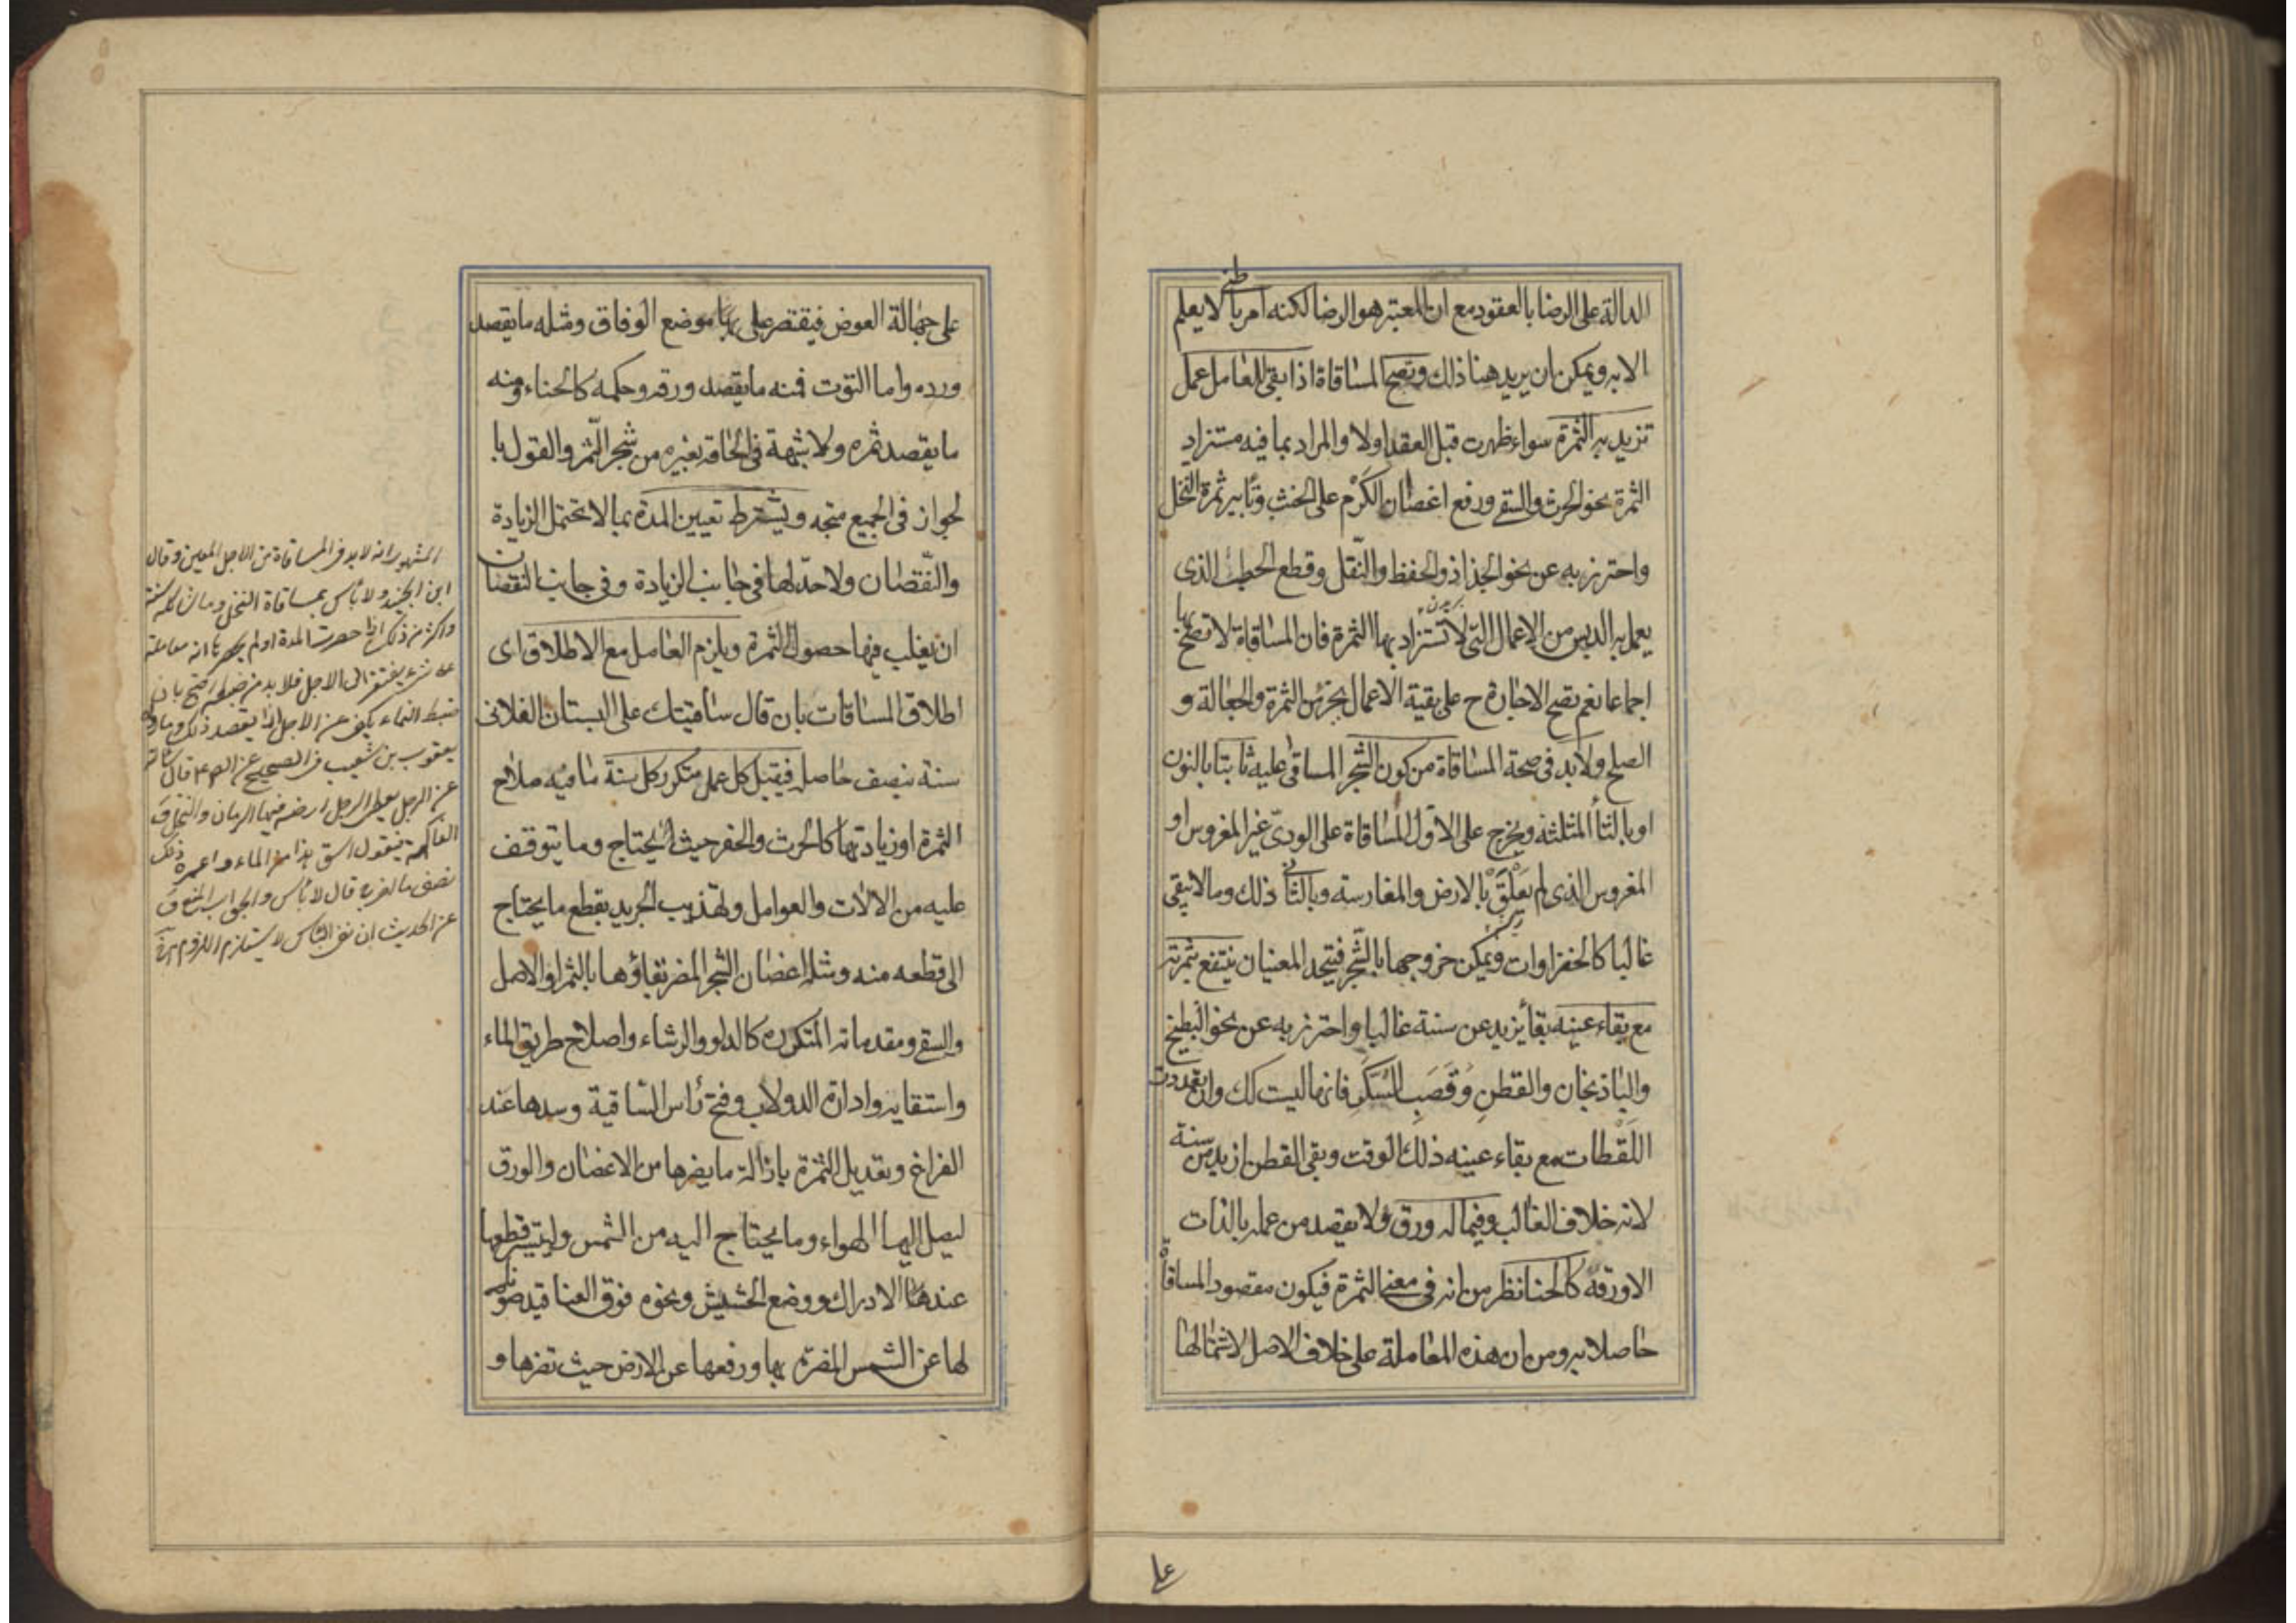 الدالة على الرضا بالعقود مع ان المعتبر هو الرضا لكنه امر باطني لا يعلم
الا به ويمكن ان يريد هنا ذلك وتصح المساقاة اذا بقى للعامل عمل
تزيد به الثمرة سواء ظهرت قبل العقد اولا والمراد بما فيه مستزاد
الثمرة نحو الحرث والسقى ورفع اغصان الكَرْم على الخشب وتأبير ثمرة النخل
واحترز به عن نحو الجذاذ والحفظ والنّقل وقطع الحطب الذى
يعمل به الدبس من الاعمال التى لا تستزاد بها الثمرة فان المساقاة لا تصح بها
اجماعا نعم تصح الاجارة ح على بقية الاعمال بجزء من الثمرة والجعالة و
الصلح ولابد فى صحة المساقاة من كون الشجر المساقى عليه ثابتا بالنون
او بالثأ المثلثة ويخرج على الاول المساقاة على الودىّ غير المغروس او
المغروس الذى لم يَعْلَقْ بالارض والمغارسة وبالثانى ذلك وما لا يبقى
غالبا كالخضراوات ويمكن خروجها بالشّجر فيتحد المعنيان ينتفع بثمرته
مع بقاء عينه بقأ يزيد عن سنة غالبا واحترز به عن نحو البطيخ
والباذنجان والقطن وقَصَب السُكَّر فانها ليست كك وان تعددت
اللَقَطات مع بقاء عينه ذلك الوقت وبقى القطن ازيد من سنة
لانه خلاف الغالب وفيما له ورق ولا يقصد من عمله بالذات
الا ورقه كالحنا نظر من انه فى معنى الثمرة فيكون مقصود المساقاة
حاصلا به ومن ان هذه المعاملة على خلاف الاصل لاشتمالها
على
على جهالة العوض فيقتصر على بها موضع الوفاق ومثله ما يقصد
ورده واما التوت فمنه ما يقصد ورقه وحكمه كالحناء ومنه
ما يقصد ثمره ولا شبهة فى الحاقه بغيره من شجر الثّمر والقول با
لجواز فى الجميع متجه ويشترط تعيين المدة بما لا تحتمل الزيادة
والنّقصان ولا حدّ لها فى جانب الزيادة وفى جانب النقصان
ان يغلب فيها حصول الثمرة ويلزم العامل مع الاطلاق اى
اطلاق المساقات بان قال ساقيتك على البستان الفلانى
سنة بنصف حاصله فيقبل كل عمل متكرر كل سنة مما فيه صلاح
الثمرة او زيادتها كالحرث والحفر حيث يحتاج وما يتوقف
عليه من الالات والعوامل وتهذيب الجريد بقطع ما يحتاج
الى قطعه منه ومثله اغصان الشجر المضر بقاؤها بالثمر او الاصل
والسقى ومقدماته المتكرره كالدلو والرشاء واصلاح طريق الماء
واستقايه وادارة الدولاب وفتح رأس الساقية وسدها عند
الفراغ وتعديل الثمرة بازالة ما يضرها من الاغصان والورق
ليصل اليها الهواء وما يحتاج اليه من الشمس وليتيسر قطعها
عند الادراك ووضع الحشيش ونحوه فوق العناقيد صونا
لها عن الشمس المضرة بها ورفعها عن الارض حيث تضرها و
المشهور انه لابد فى المساقاة من الاجل المعين وقال
ابن الجنيد ولا بأس بمساقاة النخل وما شاكله سنة
واكثر من ذلك اذا حصرت المدة او لم يحصر
يفتقر الى الاجل فلا بد من
ضبط
يعقوب بن شعيب فى الصحيح عن الص ع قال سألته
عن الرجل يعطى الرجل ارضه فيها الرمان والنخل و
الفاكهة فيقول اسق هذا من الماء واعمره ولك
نصف ما اخرج قال لا بأس والجواب
عن الحديث ان نفى البأس لا يستلزم اللزوم